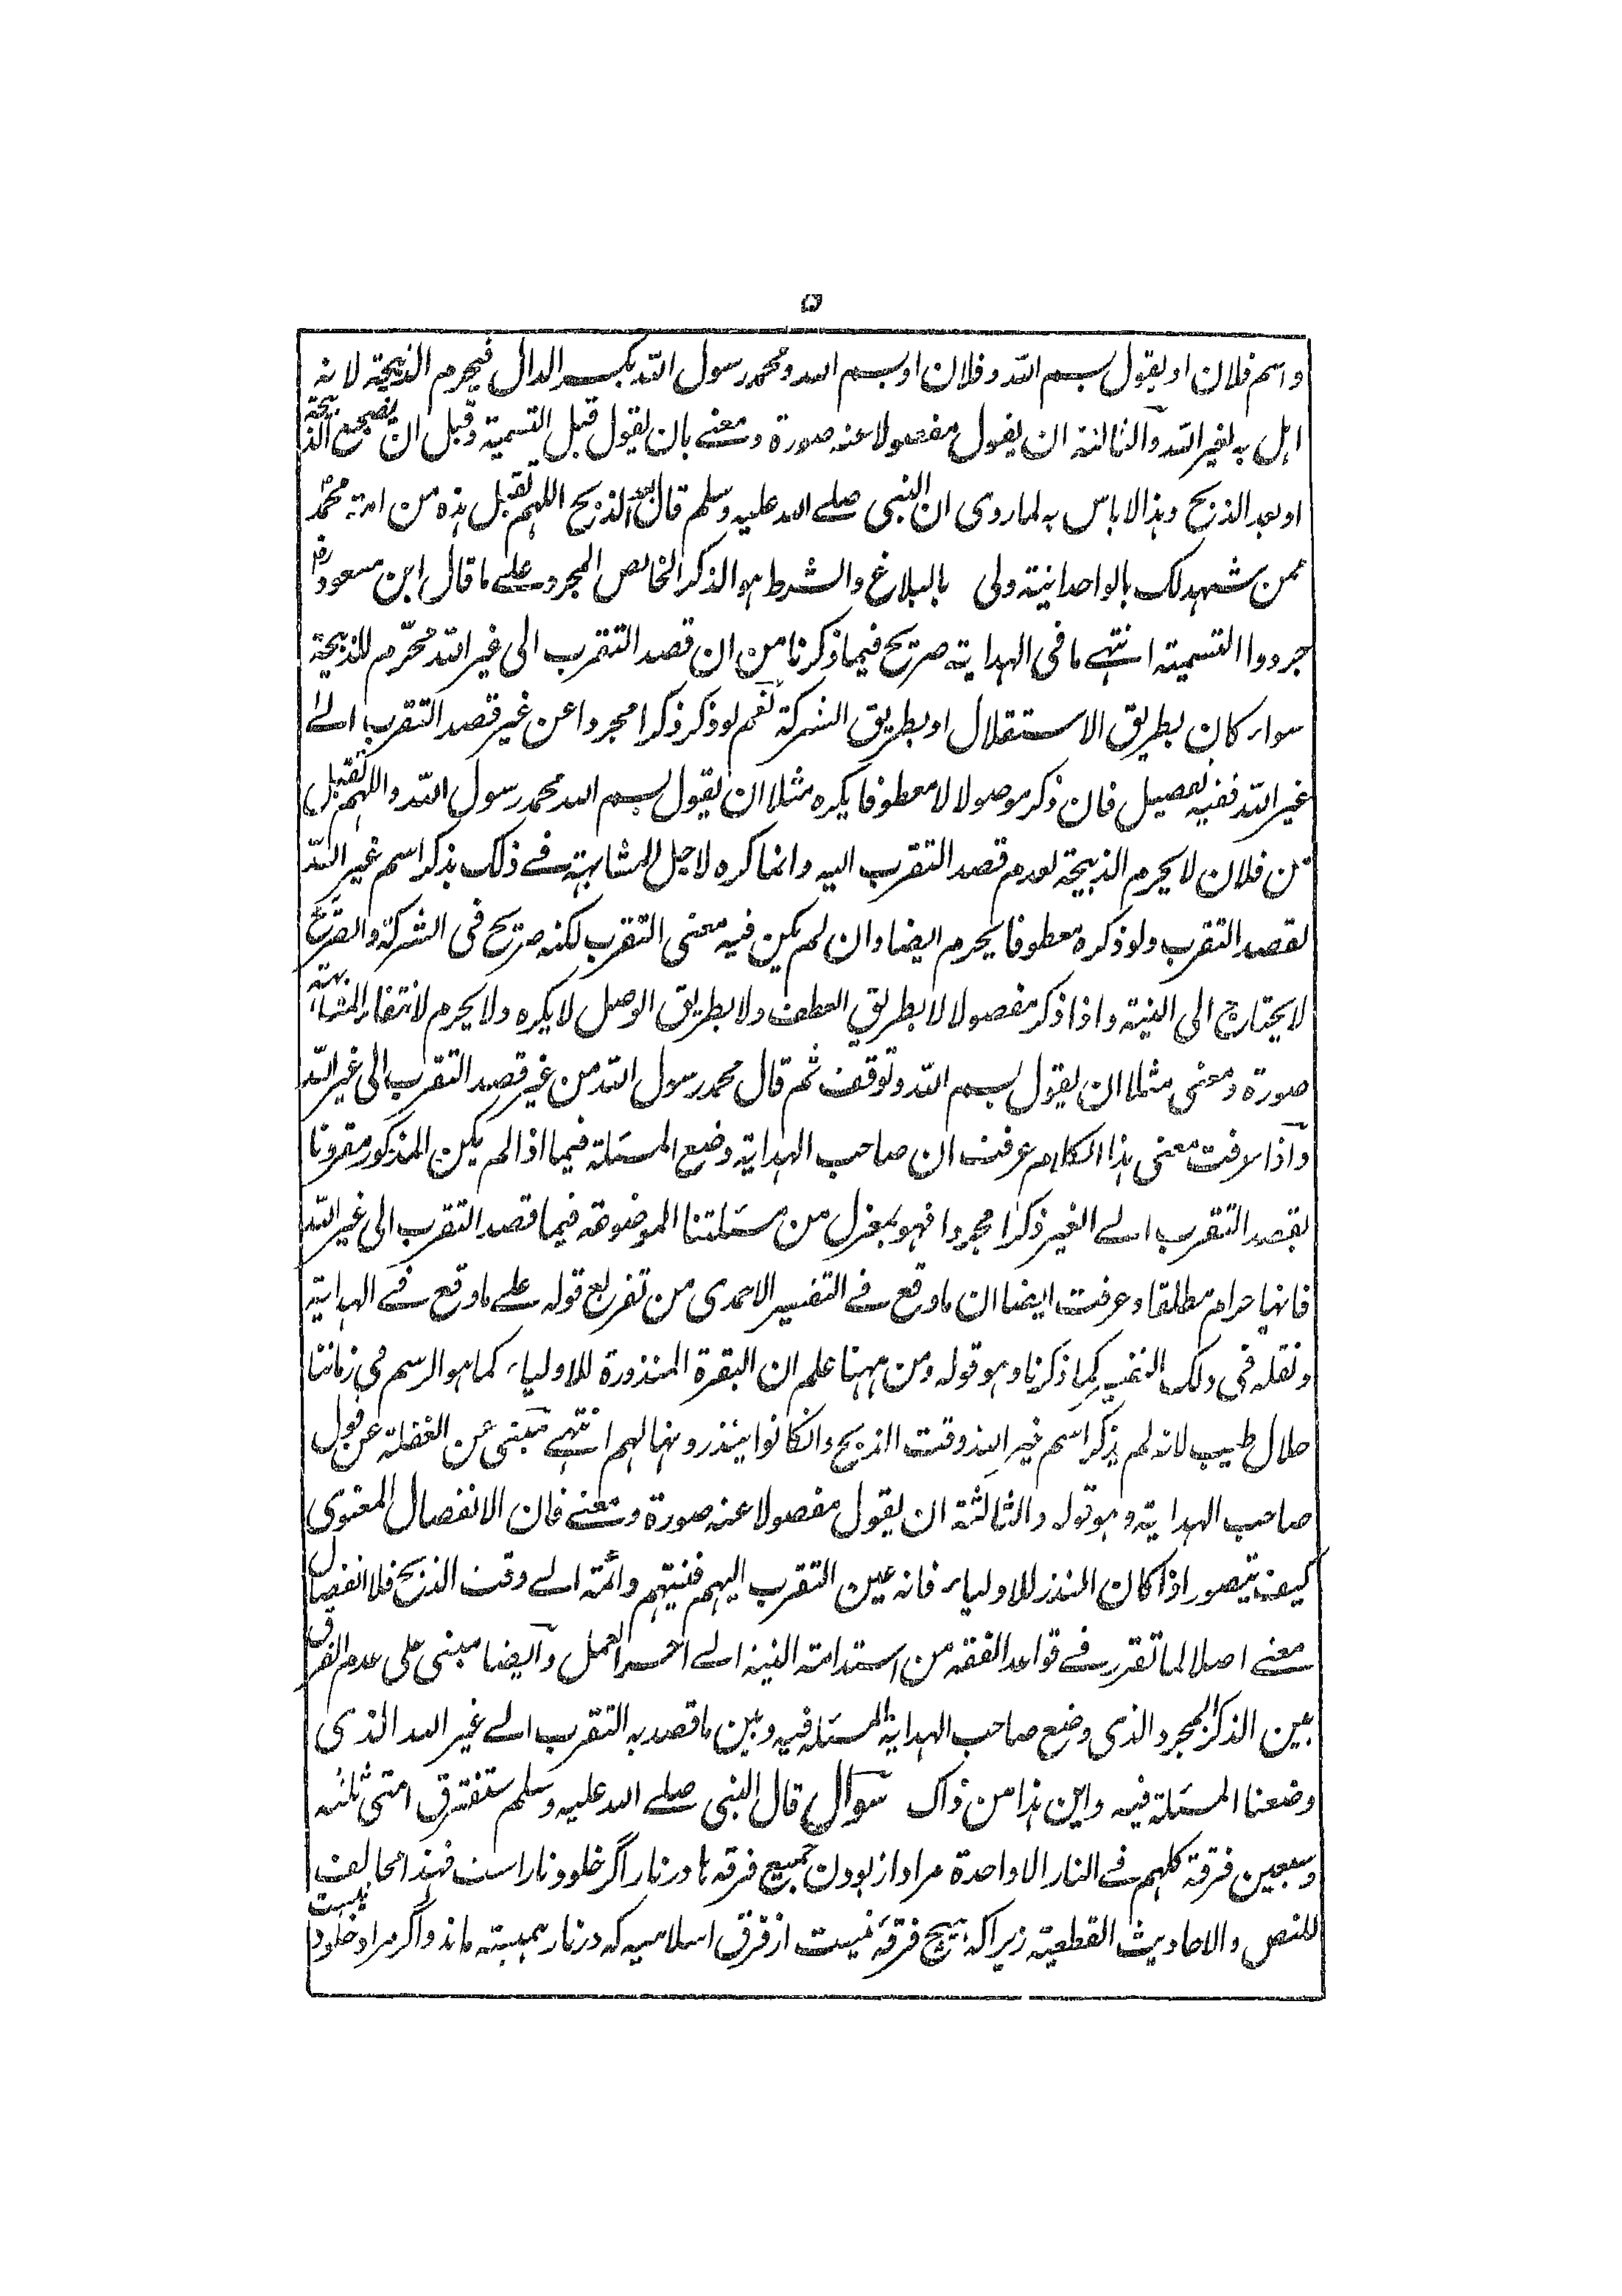 ۵
واسم فلان او یقول بسم اللہ وفلان او بسم اللہ ومحمد رسول اللہ بکسر الدال فیحرم الذبیحۃ لانہ
اہل بہ لغیر اللہ والثالثۃ ان یقول مفصولا عنہ صورۃ ومعنے بان یقول قبل التسمیۃ وقبل ان یضجع الذبیحۃ
او بعد الذبح وہذا لا باس بہ لما روی ان النبی صلے اللہ علیہ وسلم قال بعد الذبح اللہم تقبل ہذہ من امۃ محمد
ممن شہد لک بالواحدانیۃ ولی بالبلاغ والشرط ہو الذکر الخالص المجرد علے ما قال ابن مسعود رض
جردوا التسمیۃ انتہے ما فی الہدایۃ صریح فیما ذکرنا من ان قصد التقرب الی غیر اللہ محرّم للذبیحۃ
سواء کان بطریق الاستقلال او بطریق الشرکۃ نعم لو ذکر ذکرا مجردا عن غیر قصد التقرب الے
غیر اللہ ففیہ تفصیل فان ذکر موصولا لا معطوفا یکرہ مثلا ان یقول بسم اللہ محمد رسول اللہ واللہم تقبل
من فلان لا یحرم الذبیحۃ لعدم قصد التقرب الیہ وانما کرہ لاجل المشابہۃ فے ذلک بذکر اسم غیر اللہ
لقصد التقرب ولو ذکرہ معطوفا یحرم ایضا وان لم یکن فیہ معنی التقرب لکنہ صریح فی الشرکۃ والصریح
لا یحتاج الی النیۃ واذا ذکر مفصولا لا بطریق العطف ولا بطریق الوصل لا یکرہ ولا یحرم لانتفاء المشابہۃ
صورۃ ومعنی مثلا ان یقول بسم اللہ وتوقف ثم قال محمد رسول اللہ من غیر قصد التقرب الی غیر اللہ
واذا عرفت معنی ہذا الکلام عرفت ان صاحب الہدایۃ وضع المسئلۃ فیما اذا لم یکن المذکور مقرونا
بقصد التقرب الے الغیر ذکرا مجردا فہو بمعزل من مسئلتنا الموضوعۃ فیما قصد التقرب الی غیر اللہ
فانہا حرام مطلقا وعرفت ایضا ان ما وقع فے التفسیر الاحمدی من تفریع قولہ علے ما وقع فے الہدایۃ
ونقلہ فی ذلک التفسیر کما ذکرنا وہو قولہ ومن ہہنا علم ان البقرۃ المنذورۃ للاولیاء کما ہو الرسم فی زماننا
حلال طیب لانہ لم یذکر اسم غیر اللہ وقت الذبح وانکانوا ینذرونہا لہم انتہے مبنی من الغفلۃ عن قول
صاحب الہدایۃ وہو قولہ والثالثۃ ان یقول مفصولا عنہ صورۃ ومعنے فان الانفصال المعنوی
کیف یتصور اذا کان النذر للاولیاء فانہ عین التقرب الیہم فنیتہم دائمۃ الے وقت الذبح فلا انفصال
معنے اصلا لما تقرر فے قواعد الفقہ من استدامۃ النیۃ الے آخر العمل وایضا مبنی علی عدم الفرق
بین الذکر المجرد الذی وضع صاحب الہدایۃ المسئلہ فیہ وبین ما قصد بہ التقرب الے غیر اللہ الذی
وضعنا المسئلۃ فیہ واین ہذا من ذاک سوال قال النبی صلے اللہ علیہ وسلم ستفترق امتی ثلثہ
وسبعین فرقۃ کلہم فے النار الا واحدۃ مراد از بودن جمیع فرقہ ہا در نار اگر خلود نار است فہذا مخالف
للنص والاحادیث القطعیۃ زیراکہ ہیچ فرقۂ نیست از فرق اسلامیہ کہ در نار ہمیشہ ماند واگر مراد خلود نیست